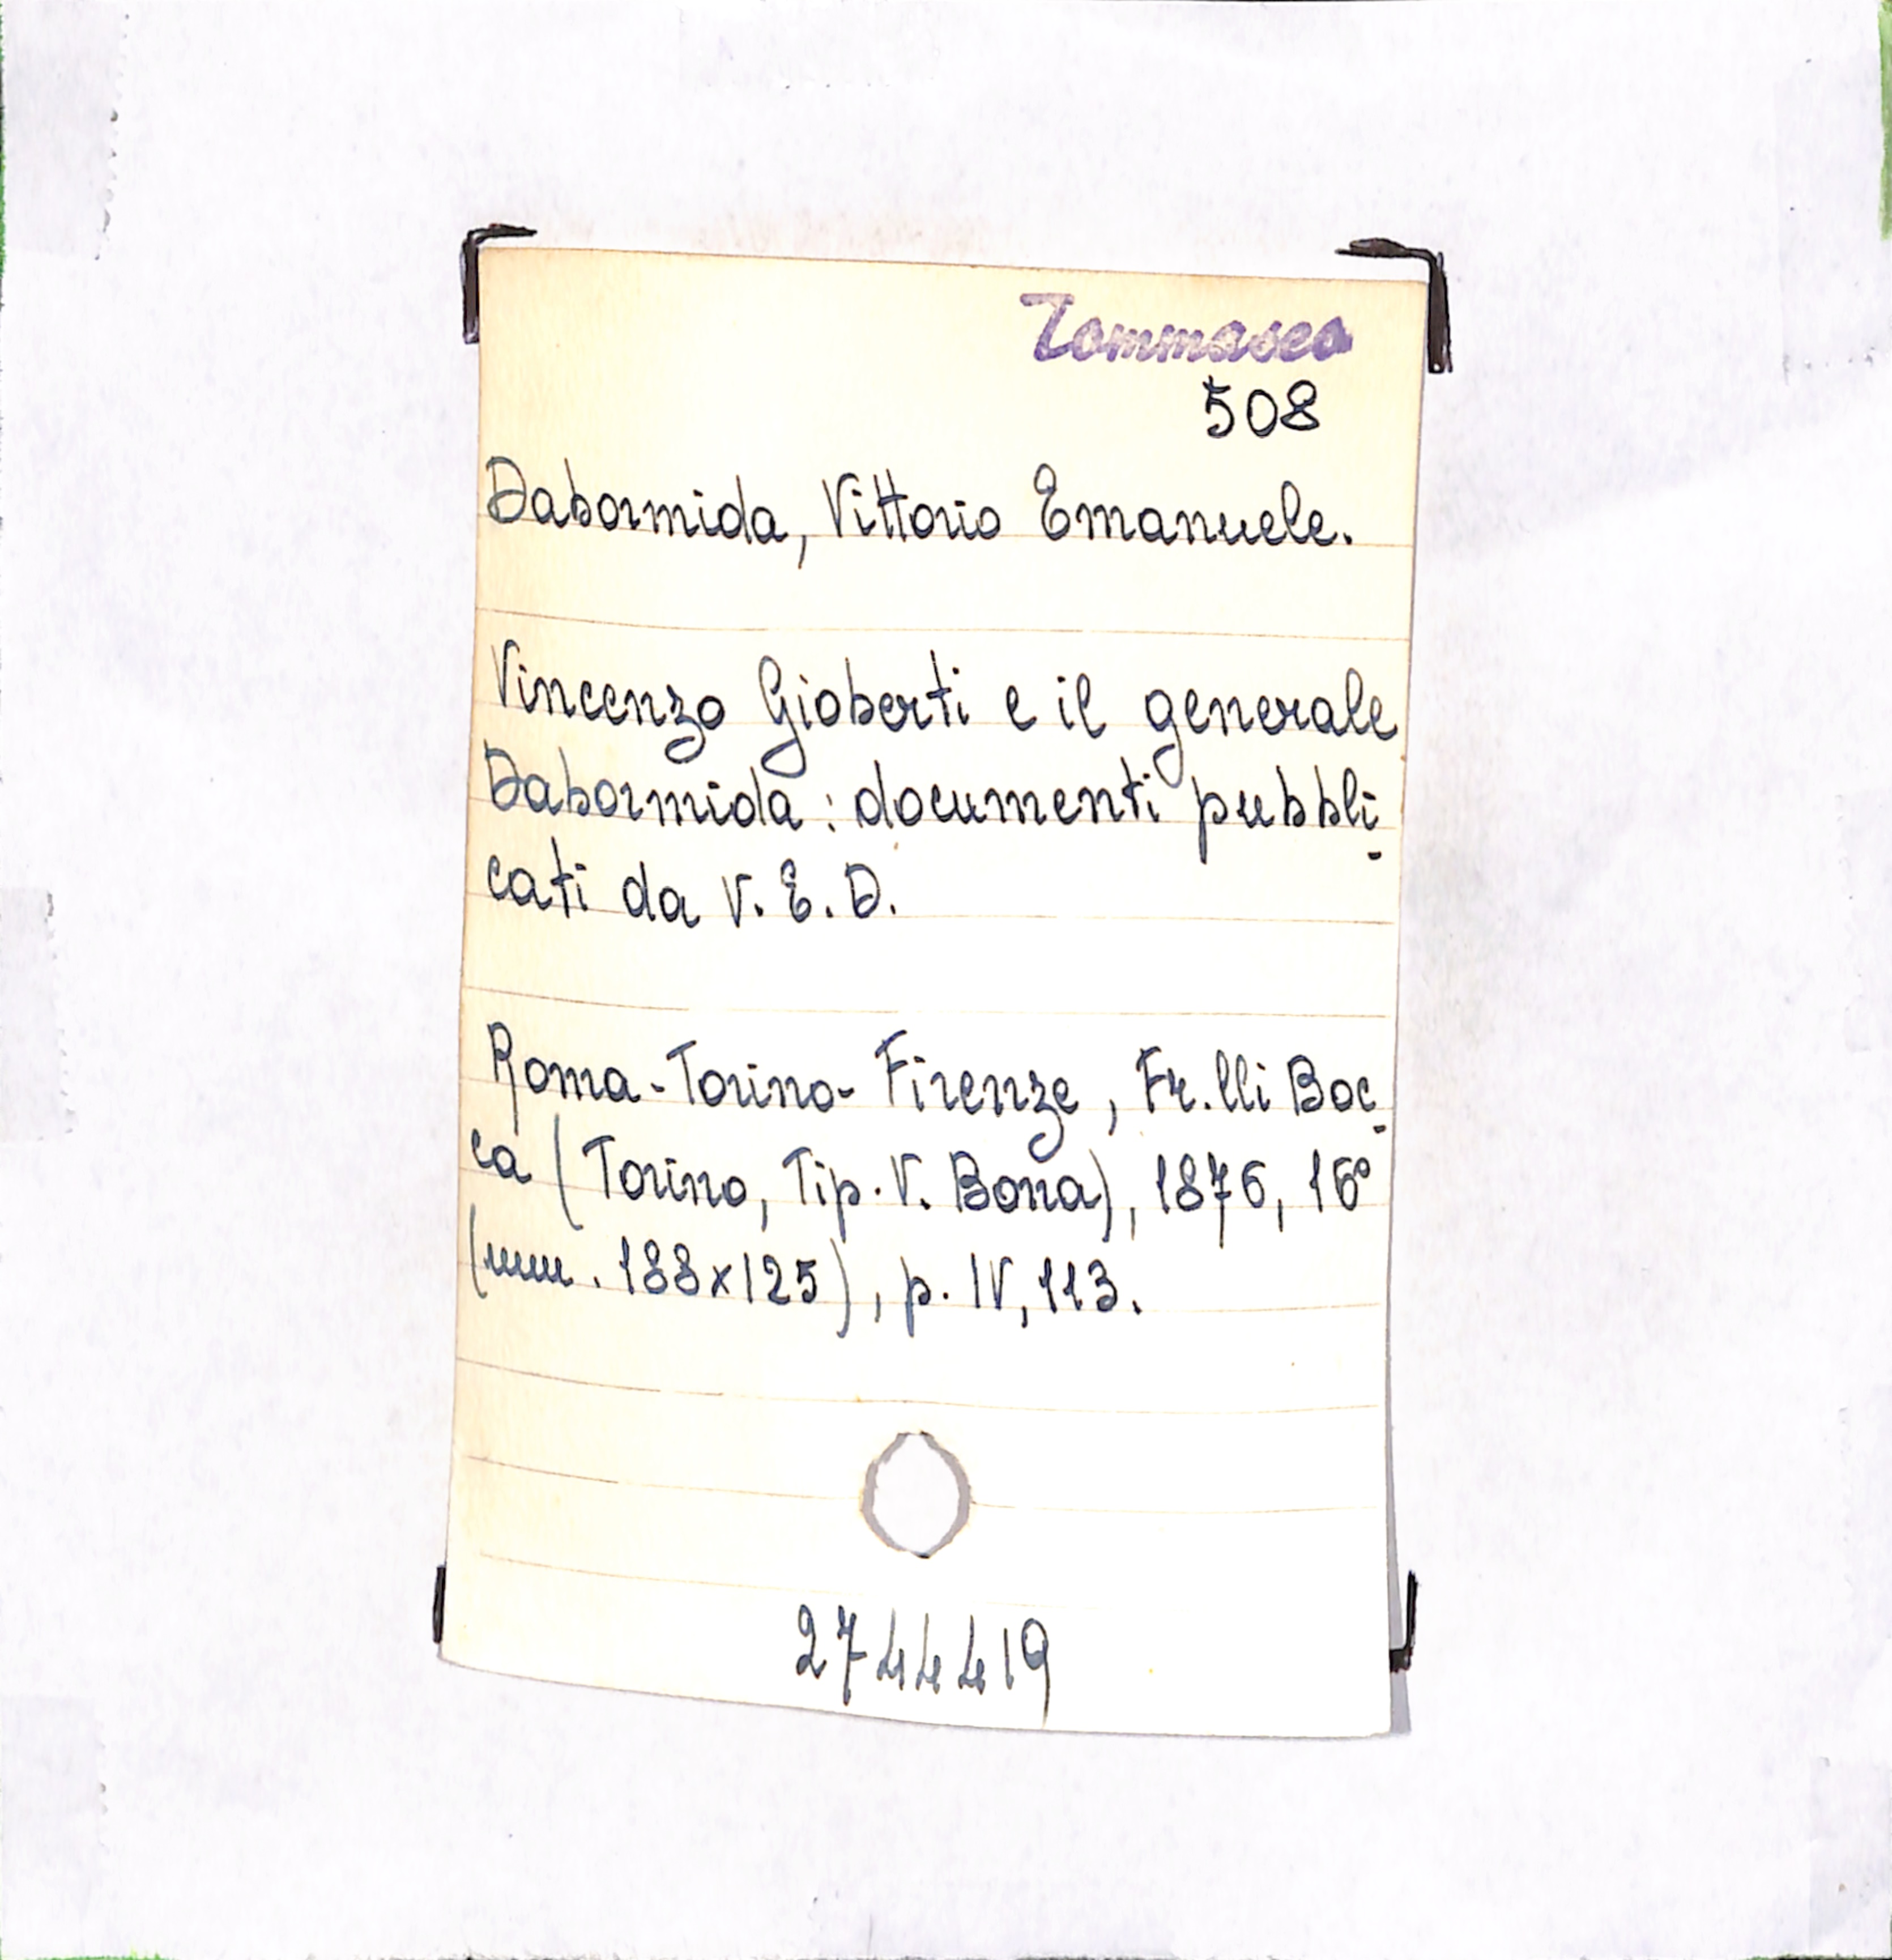 Tommaseo
508
Dabormida, Vittorio Emanuele.
Vincenzo Gioberti e il generale
Dabormida: documenti pubbli-
cati da V. E. D.
Roma-Torino-Firenze, Fr.lli Boc-
ca (Torino, Tip. V. Bona), 1876, 16°
(mm. 188x125), p. IV, 113.
2744419